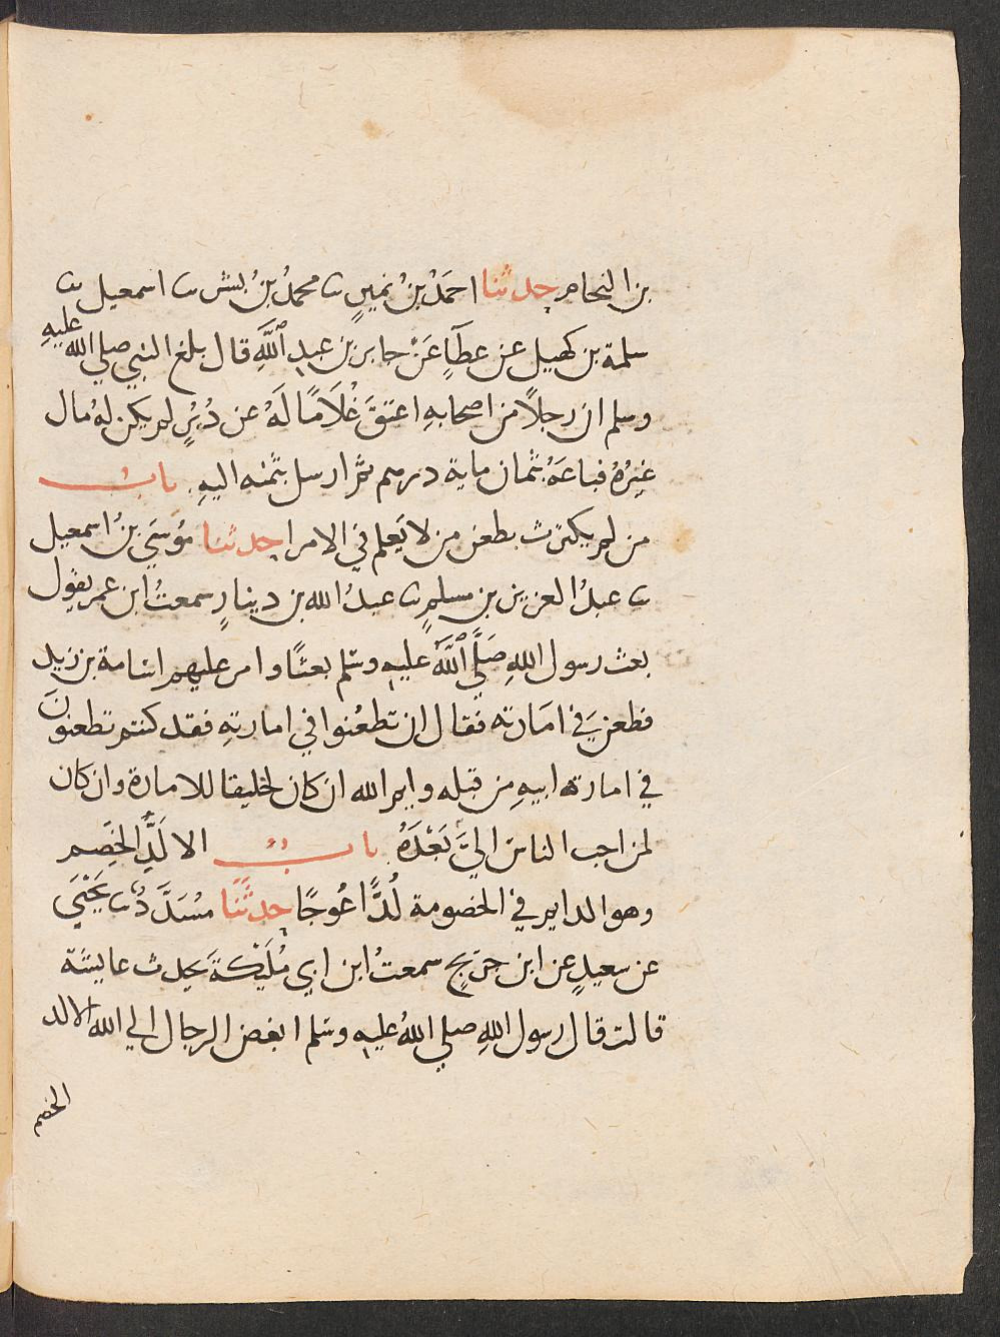 بن النحام حدثنا احمَدُ بنُ نميرٍ ثنا محمدُ بنُ بشر ثنا اسمعيل ثنا
سلمة بن كهيل عن عطآءٍ عَنْ جابر بن عبدِ ٱللَّهِ قال بلغ النبي صلي الله عليهِ
وسلم ان رجلًا من اصحابهِ اعتقَ غُلَامًا لَهُ عن دُبُرٍ لم يكن لهُ مال
غيرُهُ فباعَهُ بثمان ماية درهم ثمّ ارسل بثمنه اليهِ بابُ
من لم يكترث بطعن من لا يَعلم في الامرا حدثنا مُوسَي بنُ اسمعيل
ثنا عبدُ العزيز بن مسلمٍ ثنا عبدُ الله بن دينارٍ سمعتُ ابن عمر يقول
بعث رسول اللهِ صَلَّي ٱللَّهُ عليهِ وسَلم بعثًا وامر عليهم اسَامة بن زيدٍ
فطعن في امَارته فقال ان تطعُنوا في امارتِهِ فقد كنتم تطعنونَ
في امارته ابيهِ من قبله وايم الله ان كان لخليقا للامارة وان كان
لمن احب الناس اليَّ بَعْدَهُ بابُ الالَدِّ الخَصِم
وهو الدايم في الخصومة لُدًّا عُوجًا حدثَنَا مسَدَّدٌ ثنا يَحْيَي
عن سعيدٍ عن ابن جريجٍ سمعتُ ابن ابي مُلَيْكةَ يحدث عايشة
قالت قال رسول اللهِ صلي اللهُ عليهِ وسَلم ابغض الرجال الي الله الالد
الخصم